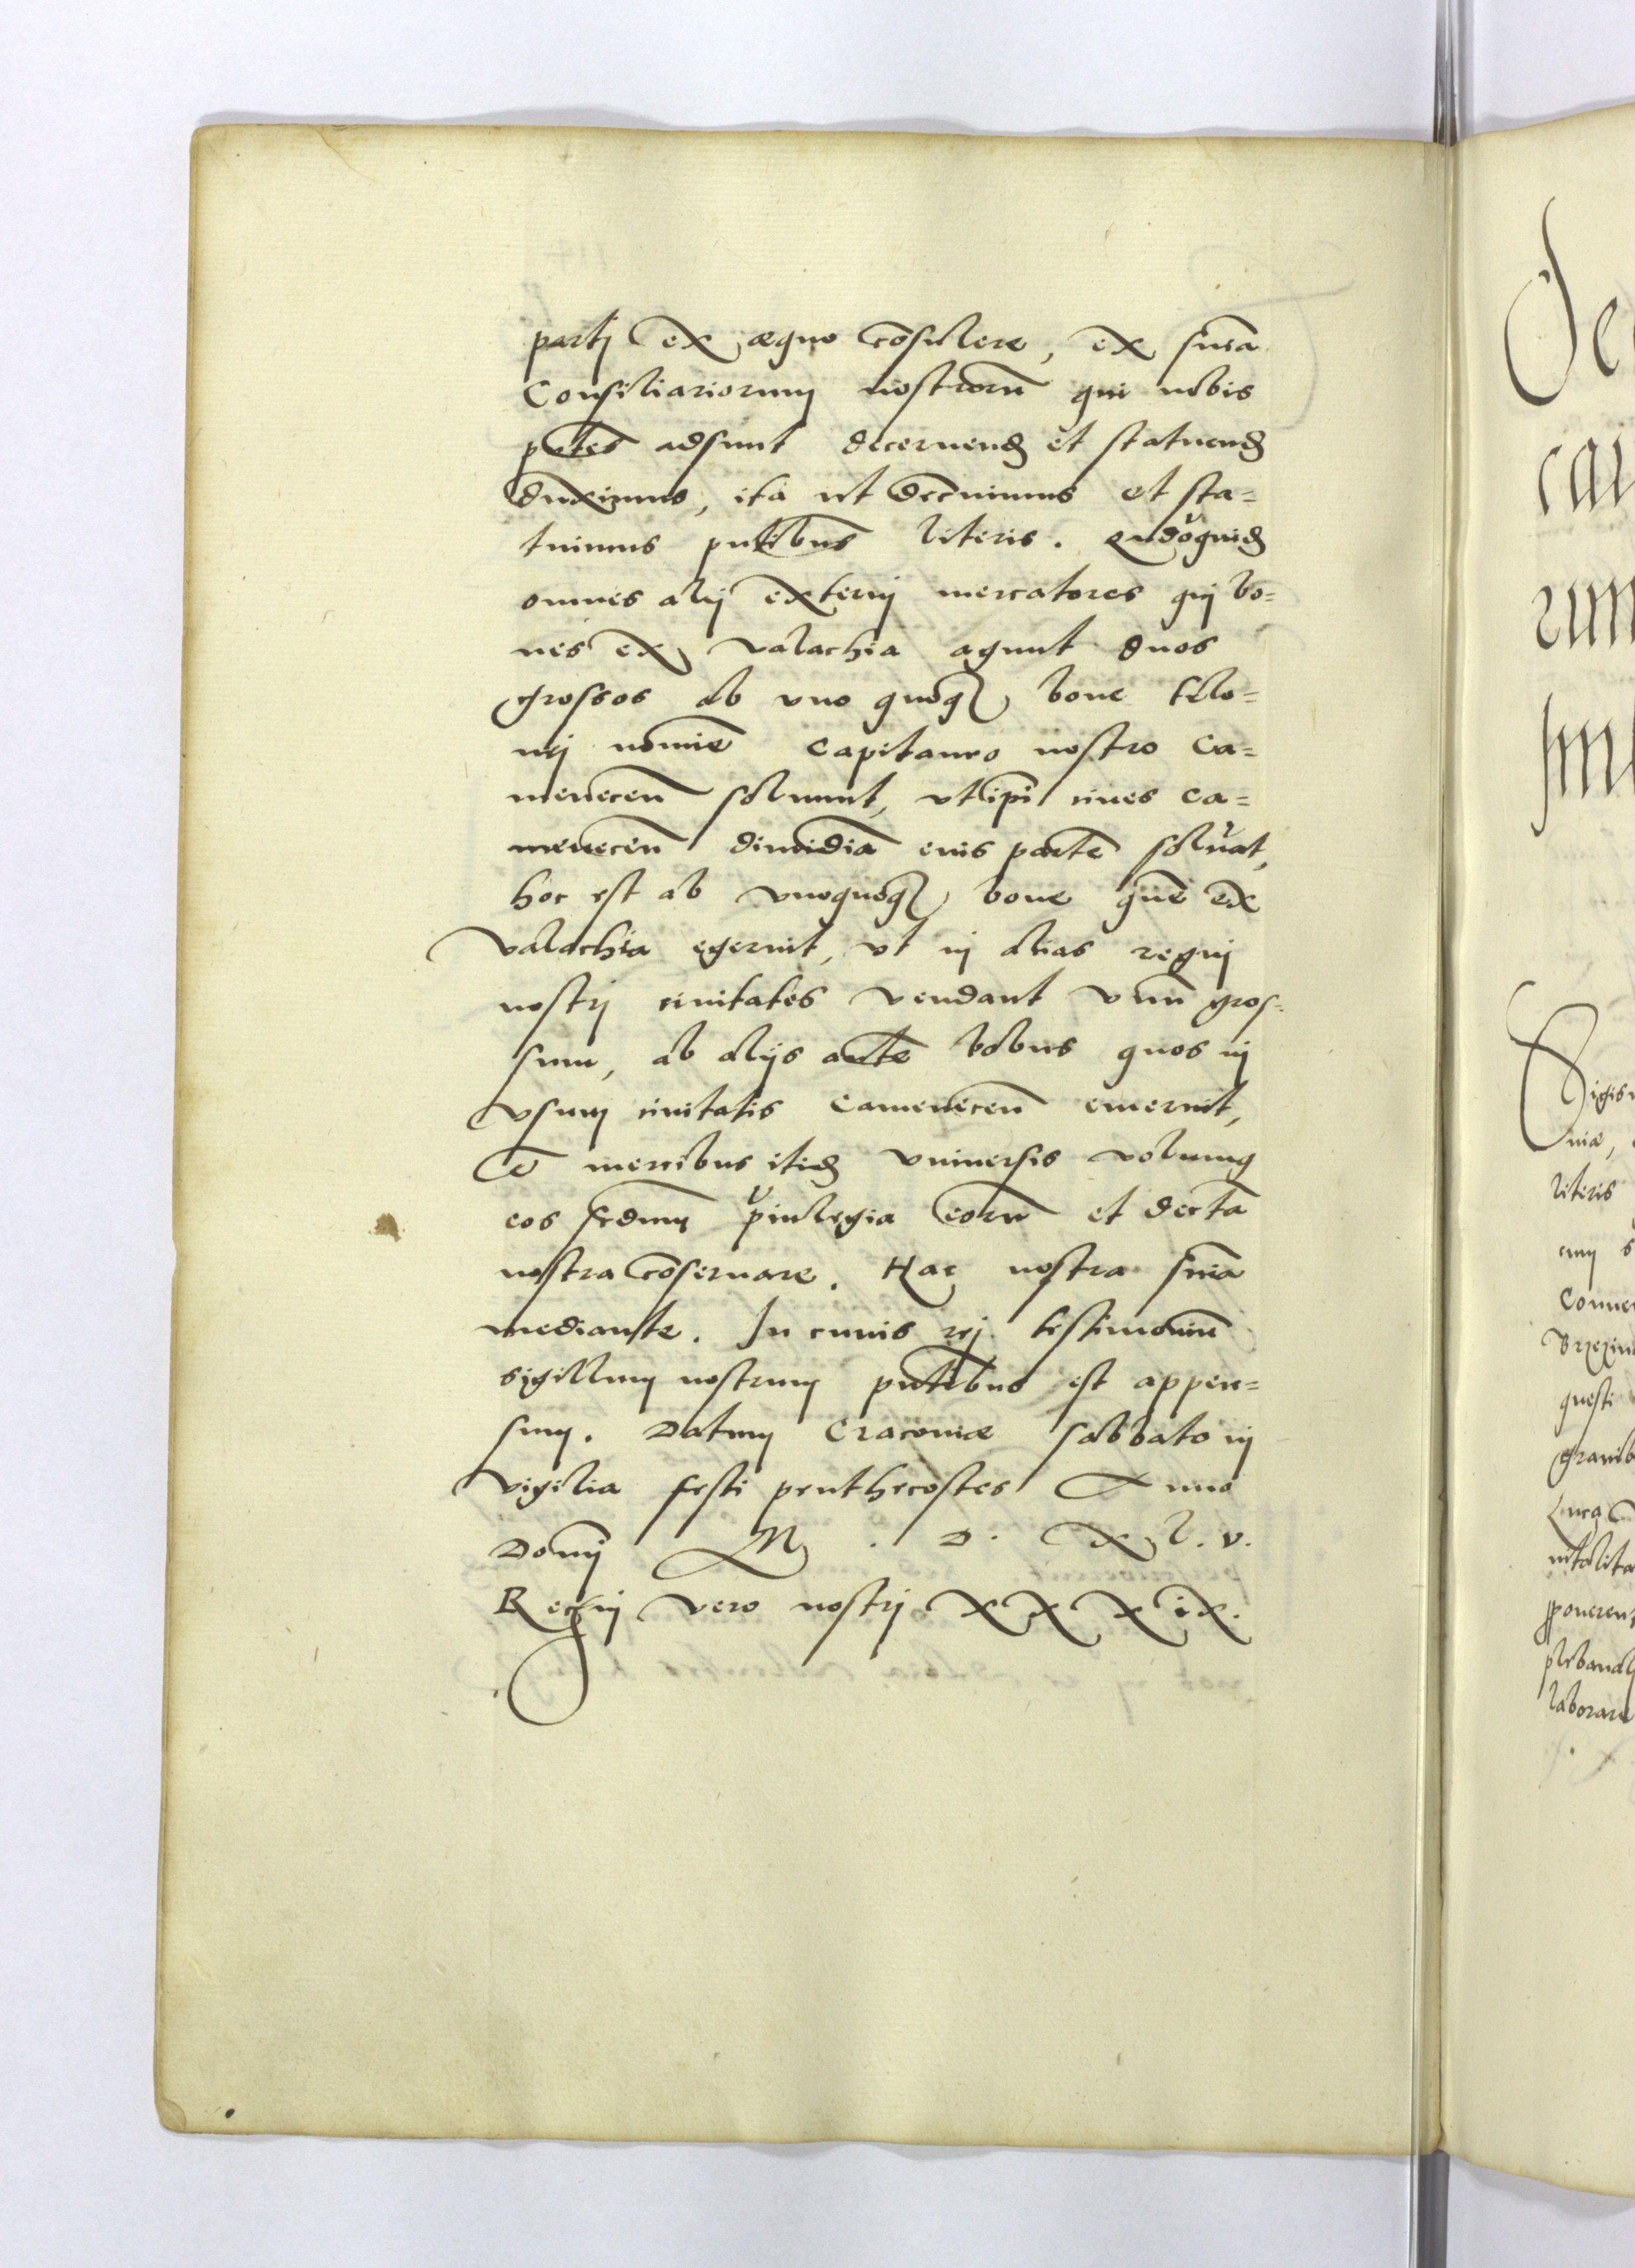 partj ex æquo cōsulere, ex snīa
Consiliariorum nostrorū qui nobis
pñtes adsunt decernend et statuend
duximus, ita ut decrnimus et sta=
tuimus pñtibus literis. Qndoquid
omnes alij externj mercatores qui bo=
ues ex valachia agunt duos
grossos ab vno quoq bove telo=
nej nomīe Capitaneo nostro Ca=
menecen̄ soluunt, vt ipi ciues Ca=
menecen̄ dimidiā eius partē soluāt,
hoc est ab vnoquoq boue quē ex
valachia egerint, vt in alias regnj
nostrj ciuitates vendant vnū gros=
sum, ab alijs aūte bobus quos in
vsum ciuitatis Camenecen̄ emerint,
et mercibus itid vniversis volumus
eos scdum priulegia eorū et decrta
nostra cōseruare. Hac nostra snīa
mediante. In cuius rej testimoniū
sigillum nostrum pñtibus est appen=
sum. Datum Cracouiæ sabbato in
vigilia festi penthecostes Anno
Domj M . D . XL . V .
Regnj vero nostrj XXXIX.
De
car
rum
Sigis
niæ,
literis
cum s
Conue
Brzezin
questi
grauib
Luca
nitalita
pponerent
plebanal
laborare